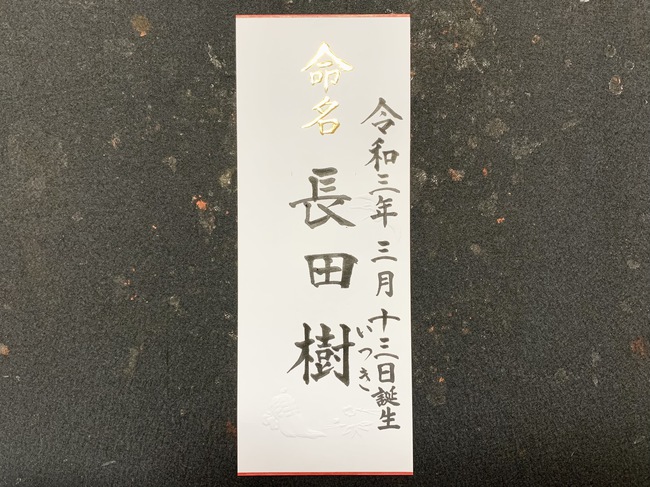 令和三年三月十三日誕生
命名
長田樹
いつき